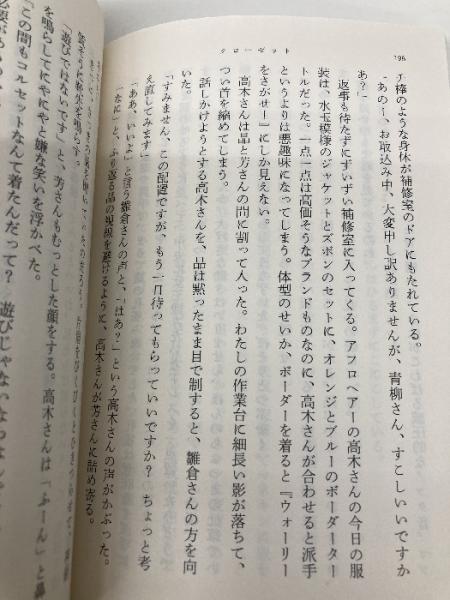 クローゼット
198
チ棒のような身体が補修室のドアにもたれている。
「あのー、お取込み中、大変申し訳ありませんが、青柳さん、すこしいいですか
あ?」
返事も待たずにずいずい補修室に入ってくる。アフロヘアーの高木さんの今日の服
装は、水玉模様のジャケットとズボンのセットに、オレンジとブルーのボーダーター
トルだった。一点一点は高価そうなブランドものなのに、高木さんが合わせると派手
というよりは悪趣味になってしまう。体型のせいか、ボーダーを着ると『ウォーリー
をさがせ!』にしか見えない。
高木さんは晶と芳さんの間に割って入った。わたしの作業台に細長い影が落ちて、
つい首を縮めてしまう。
話しかけようとする高木さんを、晶は黙ったまま目で制すると、雛倉さんの方を向
いた。
「すみません、この配置ですが、もう一日待ってもらっていいですか? ちょっと考
え直してみます」
「ああ、いいよ」と言う雛倉さんの声と、「はあ?」という高木さんの声がかぶった。
「なに」と、ふり返る晶の視線を避けるように、高木さんが芳さんに詰め寄る。
「遊びではないです」と、芳さんもむっとした顔をする。高木さんは「ふーん」と鼻
を鳴らしてにやにやと嫌な笑いを浮かべた。
「この間もコルセットなんて着たんだって? 遊びじゃないなら